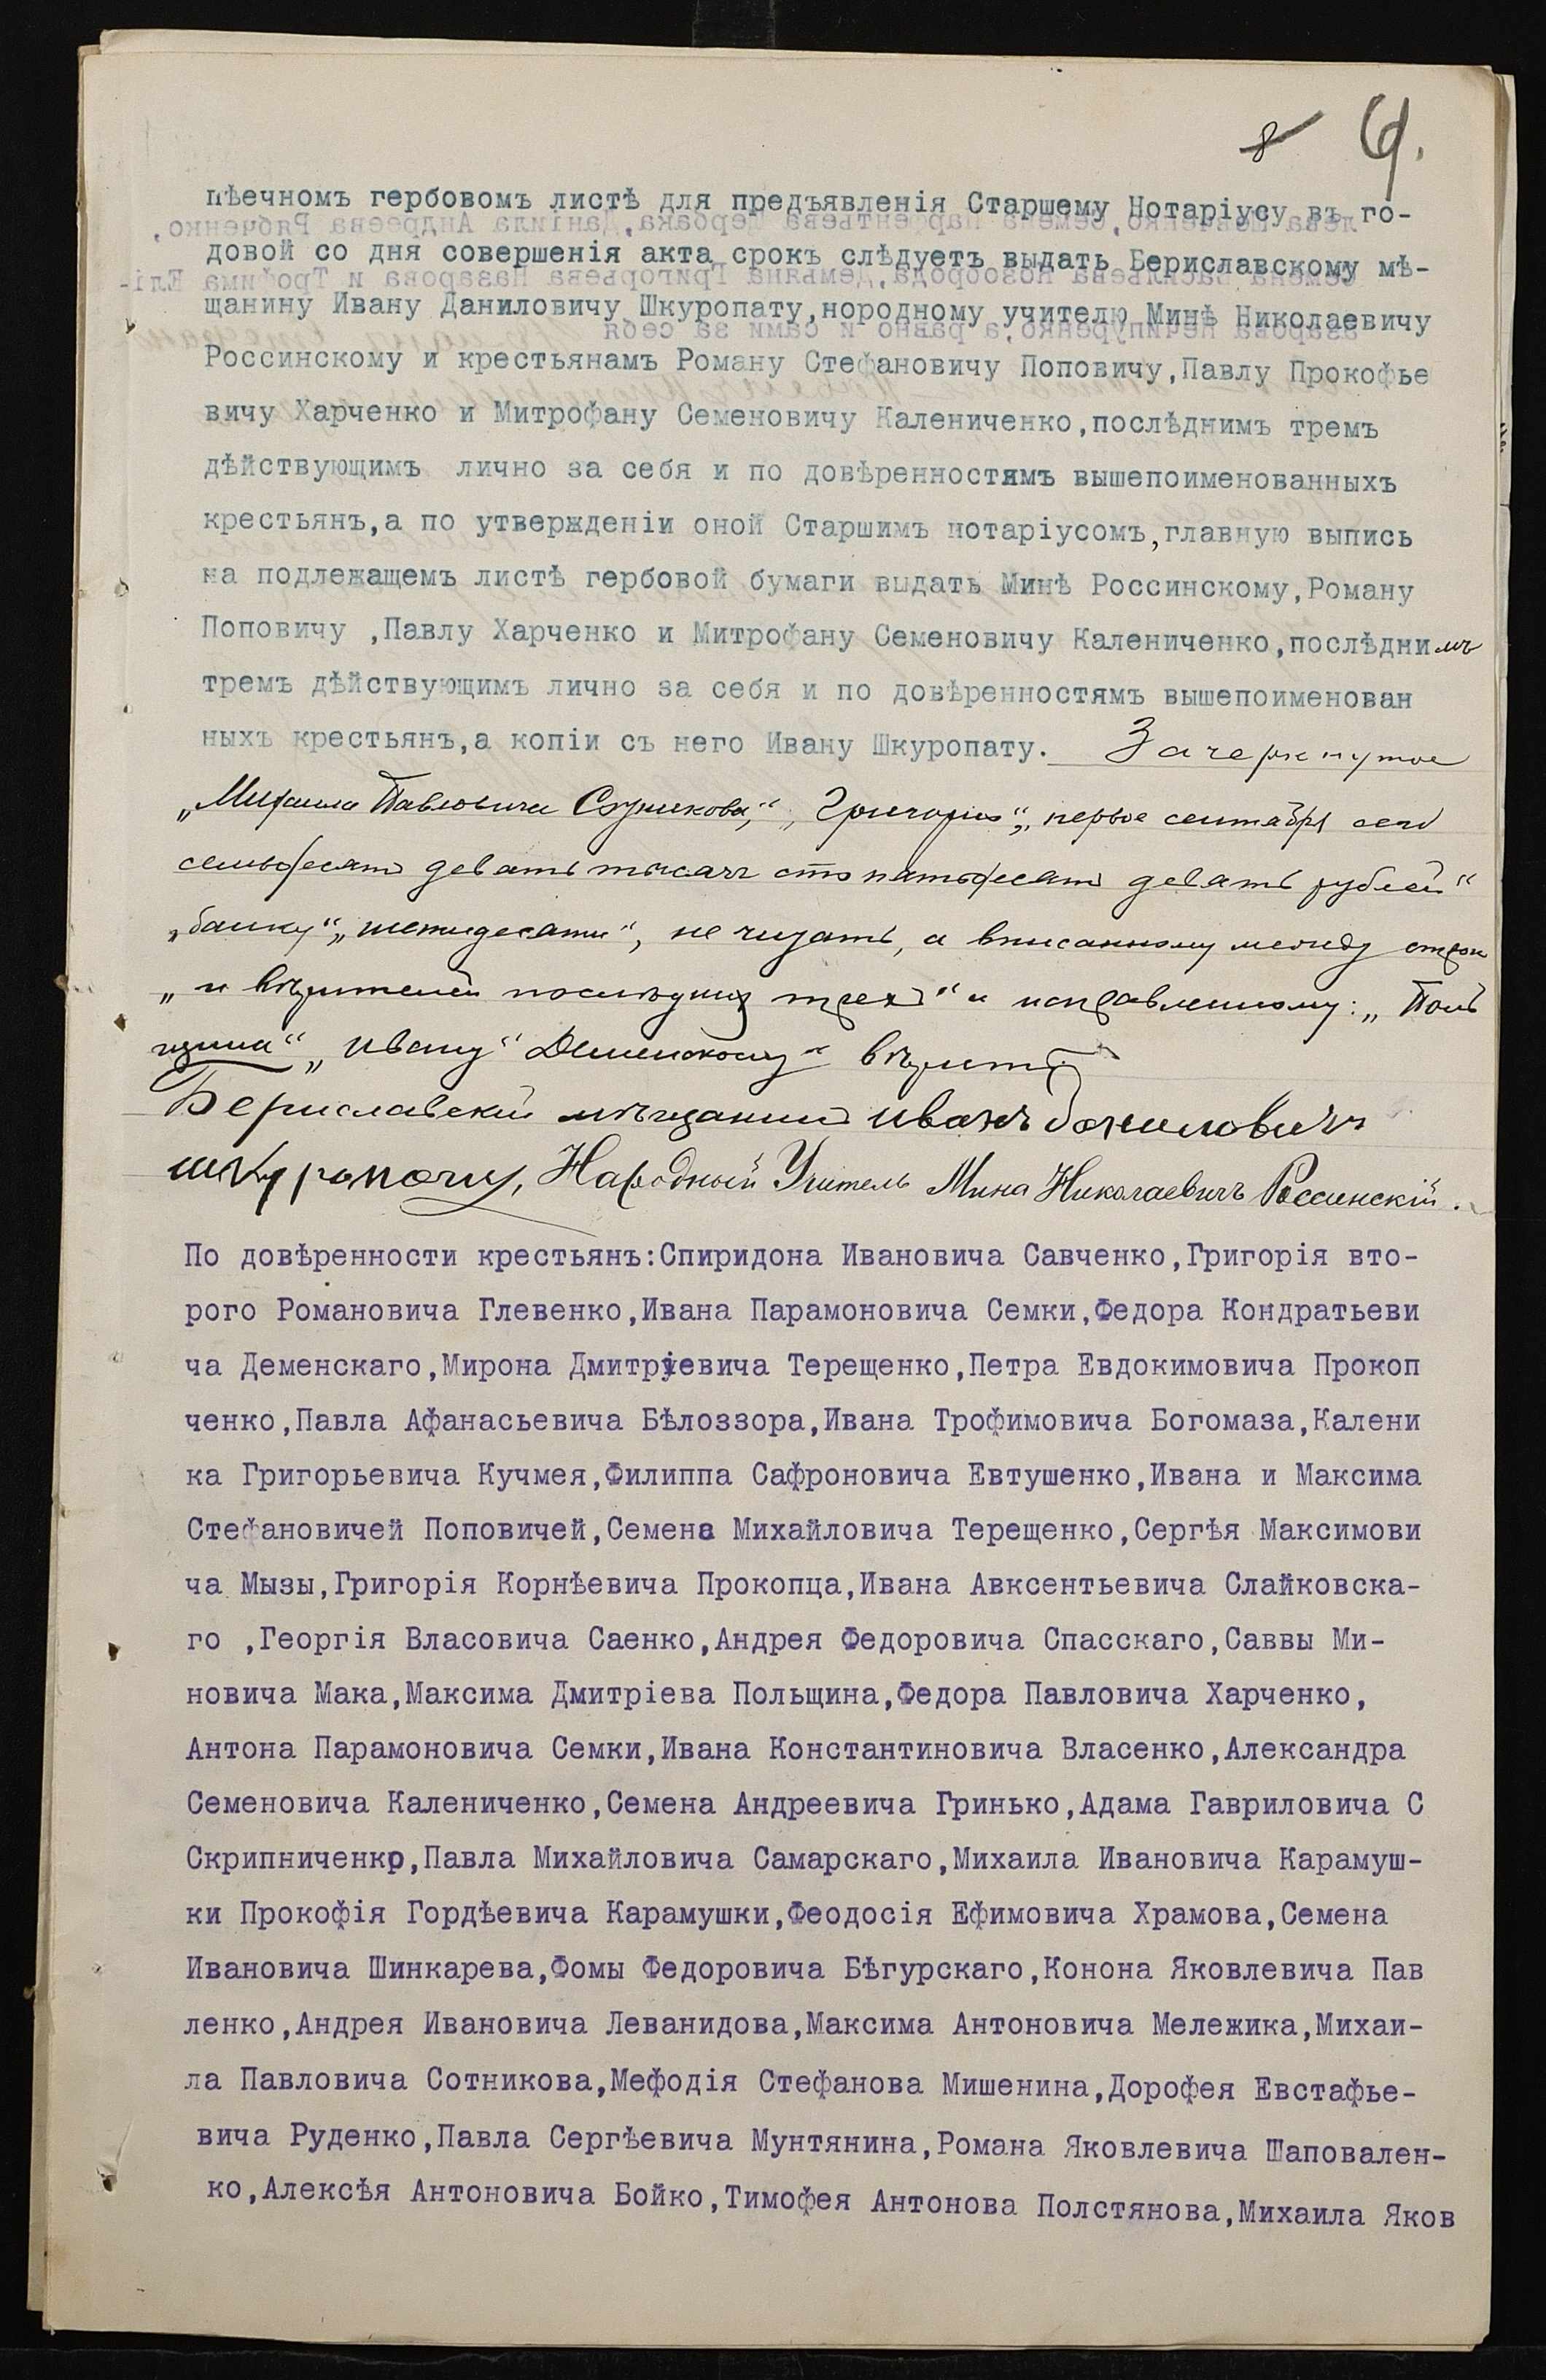 8 9.
пѣечномъ гербовомъ листѣ для предъявленія Старшему Нотаріусу въ го-
довой со дня совершенія акта срокъ слѣдуетъ выдать Бериславскому мѣ-
щанину Ивану Даниловичу Шкуропату,нородному учителю Минѣ Николаевичу
Россинскому и крестьянамъ Роману Стефановичу Поповичу,Павлу Прокофье
вичу Харченко и Митрофану Семеновичу Калениченко,послѣднимъ тремъ
дѣйствующимъ лично за себя и по довѣренностямъ вышепоименованныхъ
крестьянъ,а по утвержденіи оной Старшимъ нотаріусомъ,главную выпись
на подлежащемъ листѣ гербовой бумаги выдать Минѣ Россинскому,Роману
Поповичу ,Павлу Харченко и Митрофану Семеновичу Калениченко,послѣднимъ
тремъ дѣйствующимъ лично за себя и по довѣренностямъ вышепоименован
ныхъ крестьянъ,а копіи съ него Ивану Шкуропату. Зачеркнутое
„Михаила Павловича Сотникова,“ „Григорія“ „первое сентября сего
семьдесятъ девять тысячъ сто пятьдесятъ девять рублей“
„банку“ „шестидесяти“, не читать, а вписанному между строк
„и вѣрителей послѣднихъ трехъ“ и исправленному: „Поль
щина“ „Ивану“ Деменскому“ вѣрить
Бериславскій мѣщанинъ иванъ даниловичъ
шкуропатъ, Народный Учитель Мина Николаевичъ Россинскій.
По довѣренности крестьянъ:Спиридона Ивановича Савченко,Григорія вто-
рого Романовича Глевенко,Ивана Парамоновича Семки,Федора Кондратьеви
ча Деменскаго,Мирона Дмитріевича Терещенко,Петра Евдокимовича Прокоп
ченко,Павла Афанасьевича Бѣлоззора,Ивана Трофимовича Богомаза,Калени
ка Григорьевича Кучмея,Филиппа Сафроновича Евтушенко,Ивана и Максима
Стефановичей Поповичей,Семена Михайловича Терещенко,Сергѣя Максимови
ча Мызы,Григорія Корнѣевича Прокопца,Ивана Авксентьевича Слайковска-
го ,Георгія Власовича Саенко,Андрея Федоровича Спасскаго,Саввы Ми-
новича Мака,Максима Дмитріева Польщина,Федора Павловича Харченко,
Антона Парамоновича Семки,Ивана Константиновича Власенко,Александра
Семеновича Калениченко,Семена Андреевича Гринько,Адама Гавриловича С
Скрипниченко,Павла Михайловича Самарскаго,Михаила Ивановича Карамуш-
ки Прокофія Гордѣевича Карамушки,Феодосія Ефимовича Храмова,Семена
Ивановича Шинкарева,Фомы Федоровича Бѣгурскаго,Конона Яковлевича Пав
ленко,Андрея Ивановича Леванидова,Максима Антоновича Мележика,Михаи-
ла Павловича Сотникова,Мефодія Стефанова Мишенина,Дорофея Евстафье-
вича Руденко,Павла Сергѣевича Мунтянина,Романа Яковлевича Шаповален-
ко,Алексѣя Антоновича Бойко,Тимофея Антонова Полстянова,Михаила Яков